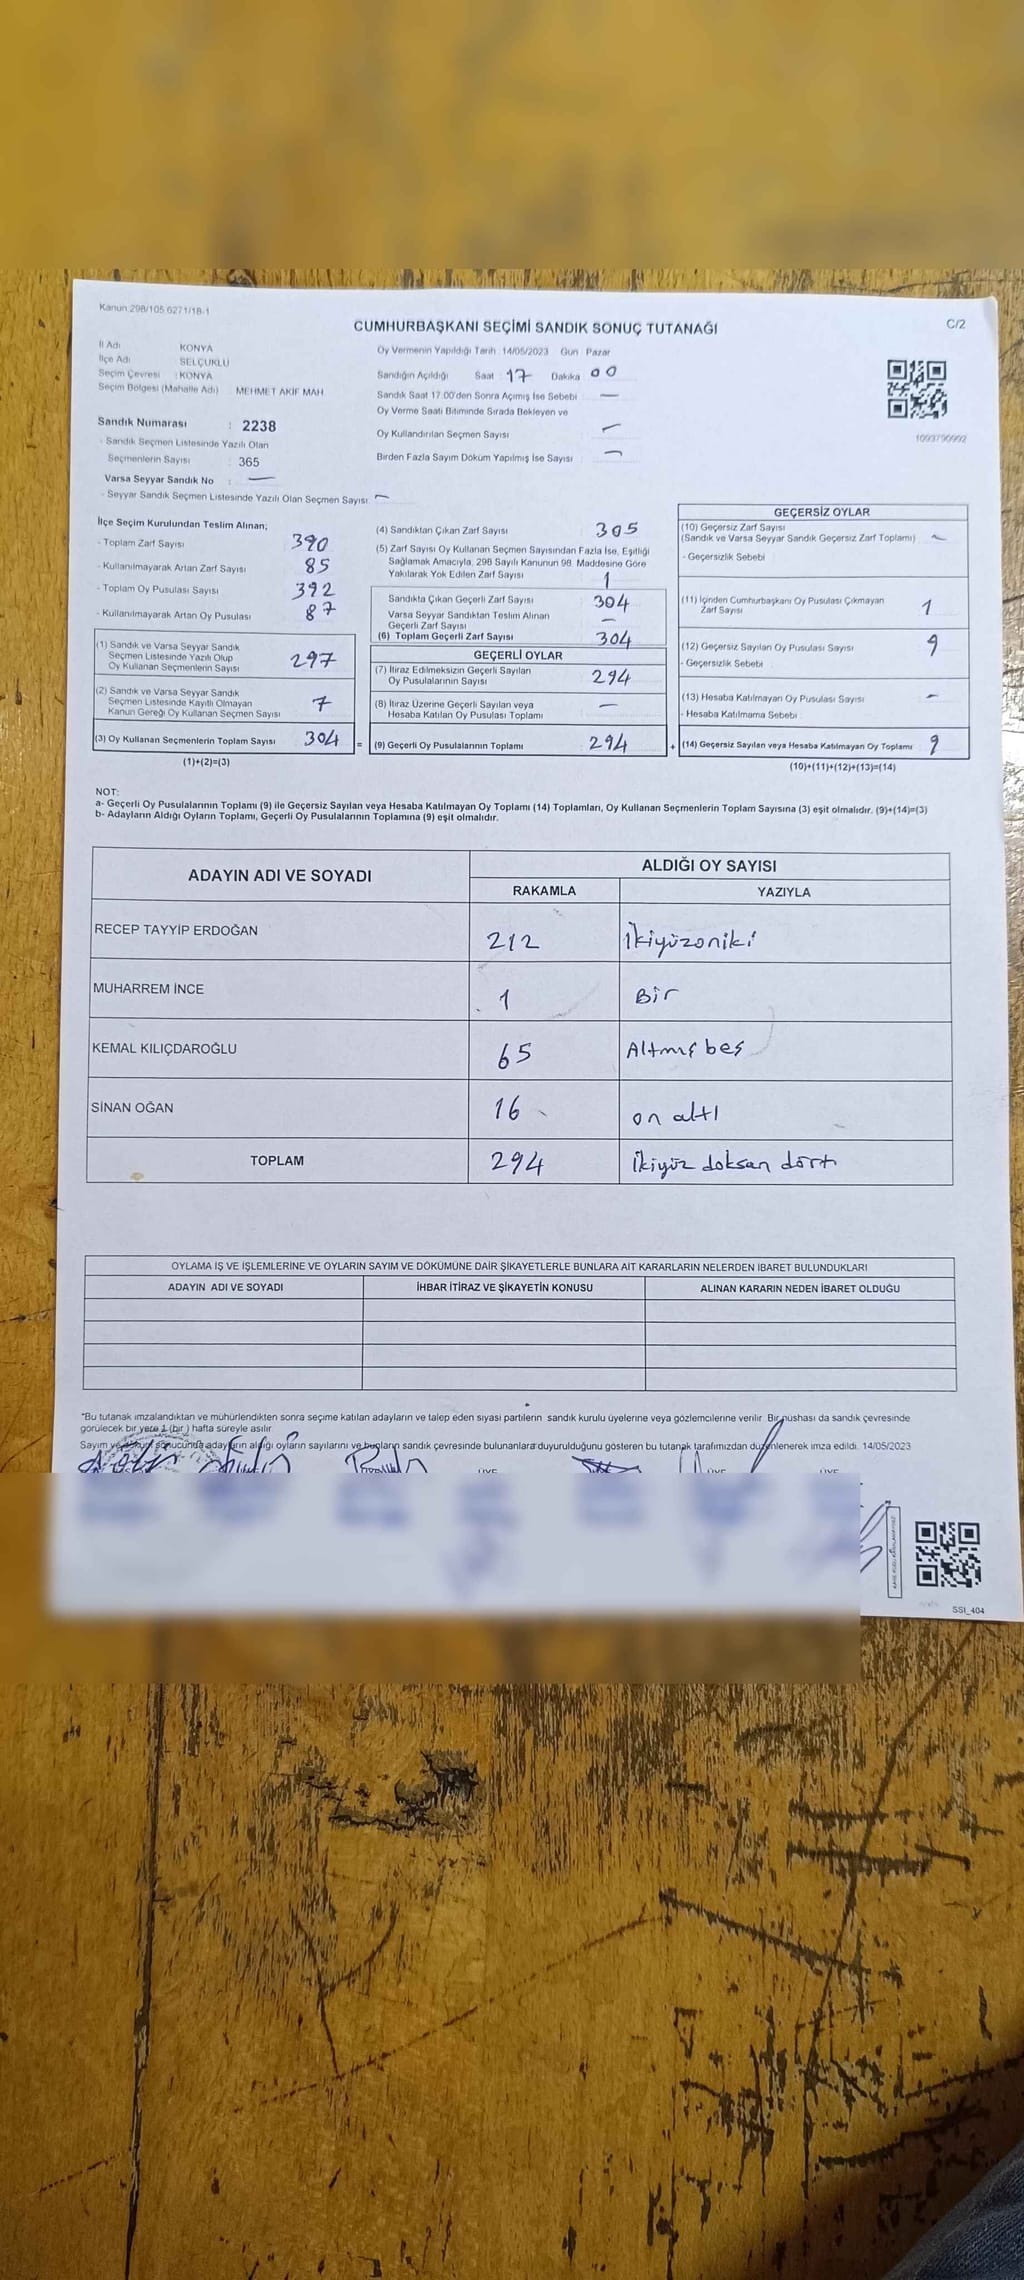 Kanun 298/105 6271/18-1
CUMHURBAŞKANI SEÇİMİ SANDIK SONUÇ TUTANAĞI
C/2
İl Adı KONYA
İlçe Adı SELÇUKLU
Seçim Çevresi : KONYA
Seçim Bölgesi (Mahalle Adı) MEHMET AKİF MAH
Sandık Numarası : 2238
- Sandık Seçmen Listesinde Yazılı Olan
Seçmenlerin Sayısı : 365
Varsa Seyyar Sandık No : —
- Seyyar Sandık Seçmen Listesinde Yazılı Olan Seçmen Sayısı —
Oy Vermenin Yapıldığı Tarih : 14/05/2023 Gün : Pazar
Sandığın Açıldığı Saat : 17 Dakika 00
Sandık Saat 17:00'den Sonra Açımış İse Sebebi —
Oy Verme Saati Bitiminde Sırada Bekleyen ve
Oy Kullandırılan Seçmen Sayısı : —
Birden Fazla Sayım Döküm Yapılmış İse Sayısı : —
1093790992
İlçe Seçim Kurulundan Teslim Alınan;
- Toplam Zarf Sayısı 390
- Kullanılmayarak Artan Zarf Sayısı 85
- Toplam Oy Pusulası Sayısı 392
- Kullanılmayarak Artan Oy Pusulası 87
(1) Sandık ve Varsa Seyyar Sandık
Seçmen Listesinde Yazılı Olup
Oy Kullanan Seçmenlerin Sayısı 297
(2) Sandık ve Varsa Seyyar Sandık
Seçmen Listesinde Kayıtlı Olmayan
Kanun Gereği Oy Kullanan Seçmen Sayısı 7
(3) Oy Kullanan Seçmenlerin Toplam Sayısı 304
(1)+(2)=(3)
(4) Sandıktan Çıkan Zarf Sayısı 305
(5) Zarf Sayısı Oy Kullanan Seçmen Sayısından Fazla İse, Eşitliği
Sağlamak Amacıyla, 298 Sayılı Kanunun 98. Maddesine Göre
Yakılarak Yok Edilen Zarf Sayısı 1
Sandıkta Çıkan Geçerli Zarf Sayısı 304
Varsa Seyyar Sandıktan Teslim Alınan
Geçerli Zarf Sayısı —
(6) Toplam Geçerli Zarf Sayısı 304
GEÇERLİ OYLAR
(7) İtiraz Edilmeksizin Geçerli Sayılan
Oy Pusulalarının Sayısı 294
(8) İtiraz Üzerine Geçerli Sayılan veya
Hesaba Katılan Oy Pusulası Toplamı —
= (9) Geçerli Oy Pusulalarının Toplamı 294
GEÇERSİZ OYLAR
(10) Geçersiz Zarf Sayısı
(Sandık ve Varsa Seyyar Sandık Geçersiz Zarf Toplamı) —
- Geçersizlik Sebebi
(11) İçinden Cumhurbaşkanı Oy Pusulası Çıkmayan
Zarf Sayısı 1
(12) Geçersiz Sayılan Oy Pusulası Sayısı 9
- Geçersizlik Sebebi
(13) Hesaba Katılmayan Oy Pusulası Sayısı —
- Hesaba Katılmama Sebebi
+ (14) Geçersiz Sayılan veya Hesaba Katılmayan Oy Toplamı 9
(10)+(11)+(12)+(13)=(14)
NOT:
a- Geçerli Oy Pusulalarının Toplamı (9) ile Geçersiz Sayılan veya Hesaba Katılmayan Oy Toplamı (14) Toplamları, Oy Kullanan Seçmenlerin Toplam Sayısına (3) eşit olmalıdır. (9)+(14)=(3)
b- Adayların Aldığı Oyların Toplamı, Geçerli Oy Pusulalarının Toplamına (9) eşit olmalıdır.
ADAYIN ADI VE SOYADI ALDIĞI OY SAYISI
RAKAMLA YAZIYLA
RECEP TAYYİP ERDOĞAN 212 İkiyüzoniki
MUHARREM İNCE 1 Bir
KEMAL KILIÇDAROĞLU 65 Altmış beş
SİNAN OĞAN 16 on altı
TOPLAM 294 İkiyüz doksan dört
OYLAMA İŞ VE İŞLEMLERİNE VE OYLARIN SAYIM VE DÖKÜMÜNE DAİR ŞİKAYETLERLE BUNLARA AİT KARARLARIN NELERDEN İBARET BULUNDUKLARI
ADAYIN ADI VE SOYADI İHBAR İTİRAZ VE ŞİKAYETİN KONUSU ALINAN KARARIN NEDEN İBARET OLDUĞU
"Bu tutanak imzalandıktan ve mühürlendikten sonra seçime katılan adayların ve talep eden siyasi partilerin sandık kurulu üyelerine veya gözlemcilerine verilir. Bir nüshası da sandık çevresinde
görülecek bir yere 1 (bir) hafta süreyle asılır
Sayım ve döküm sonucunda adayların aldığı oyların sayılarını ve bunların sandık çevresinde bulunanlara duyurulduğunu gösteren bu tutanak tarafımızdan düzenlenerek imza edildi. 14/05/2023
ÜYE ÜYE ÜYE
SSI_404